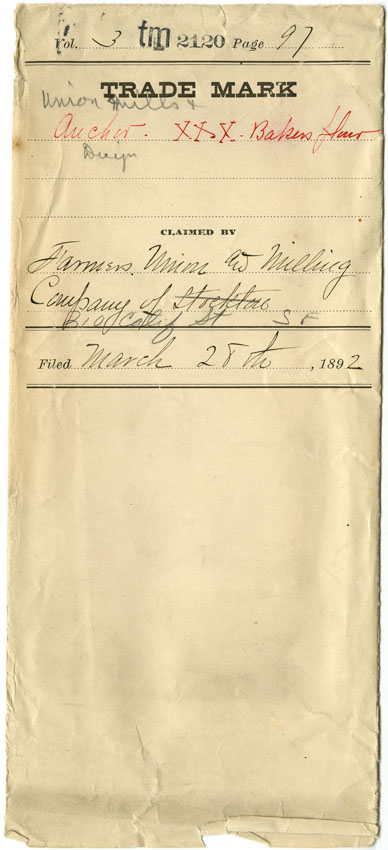 Vol. 3 tm 2120 Page 97
TRADE MARK
Union Mills &
Anchor - XXX - Bakers flour
Design
CLAIMED BY
Farmers Union & Milling
Company of Stockton
310 Calif St S F
Filed March 28th, 1892